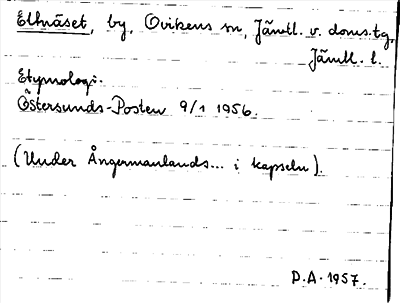 Elknäset, by, Ovikens sn, Jämtl. v. doms.tg,
Jämtl. l.
Etymologi.
Östersunds-Posten 9/1 1956.
(Under Ångermanlands... i kapseln).
D.A. 1957.